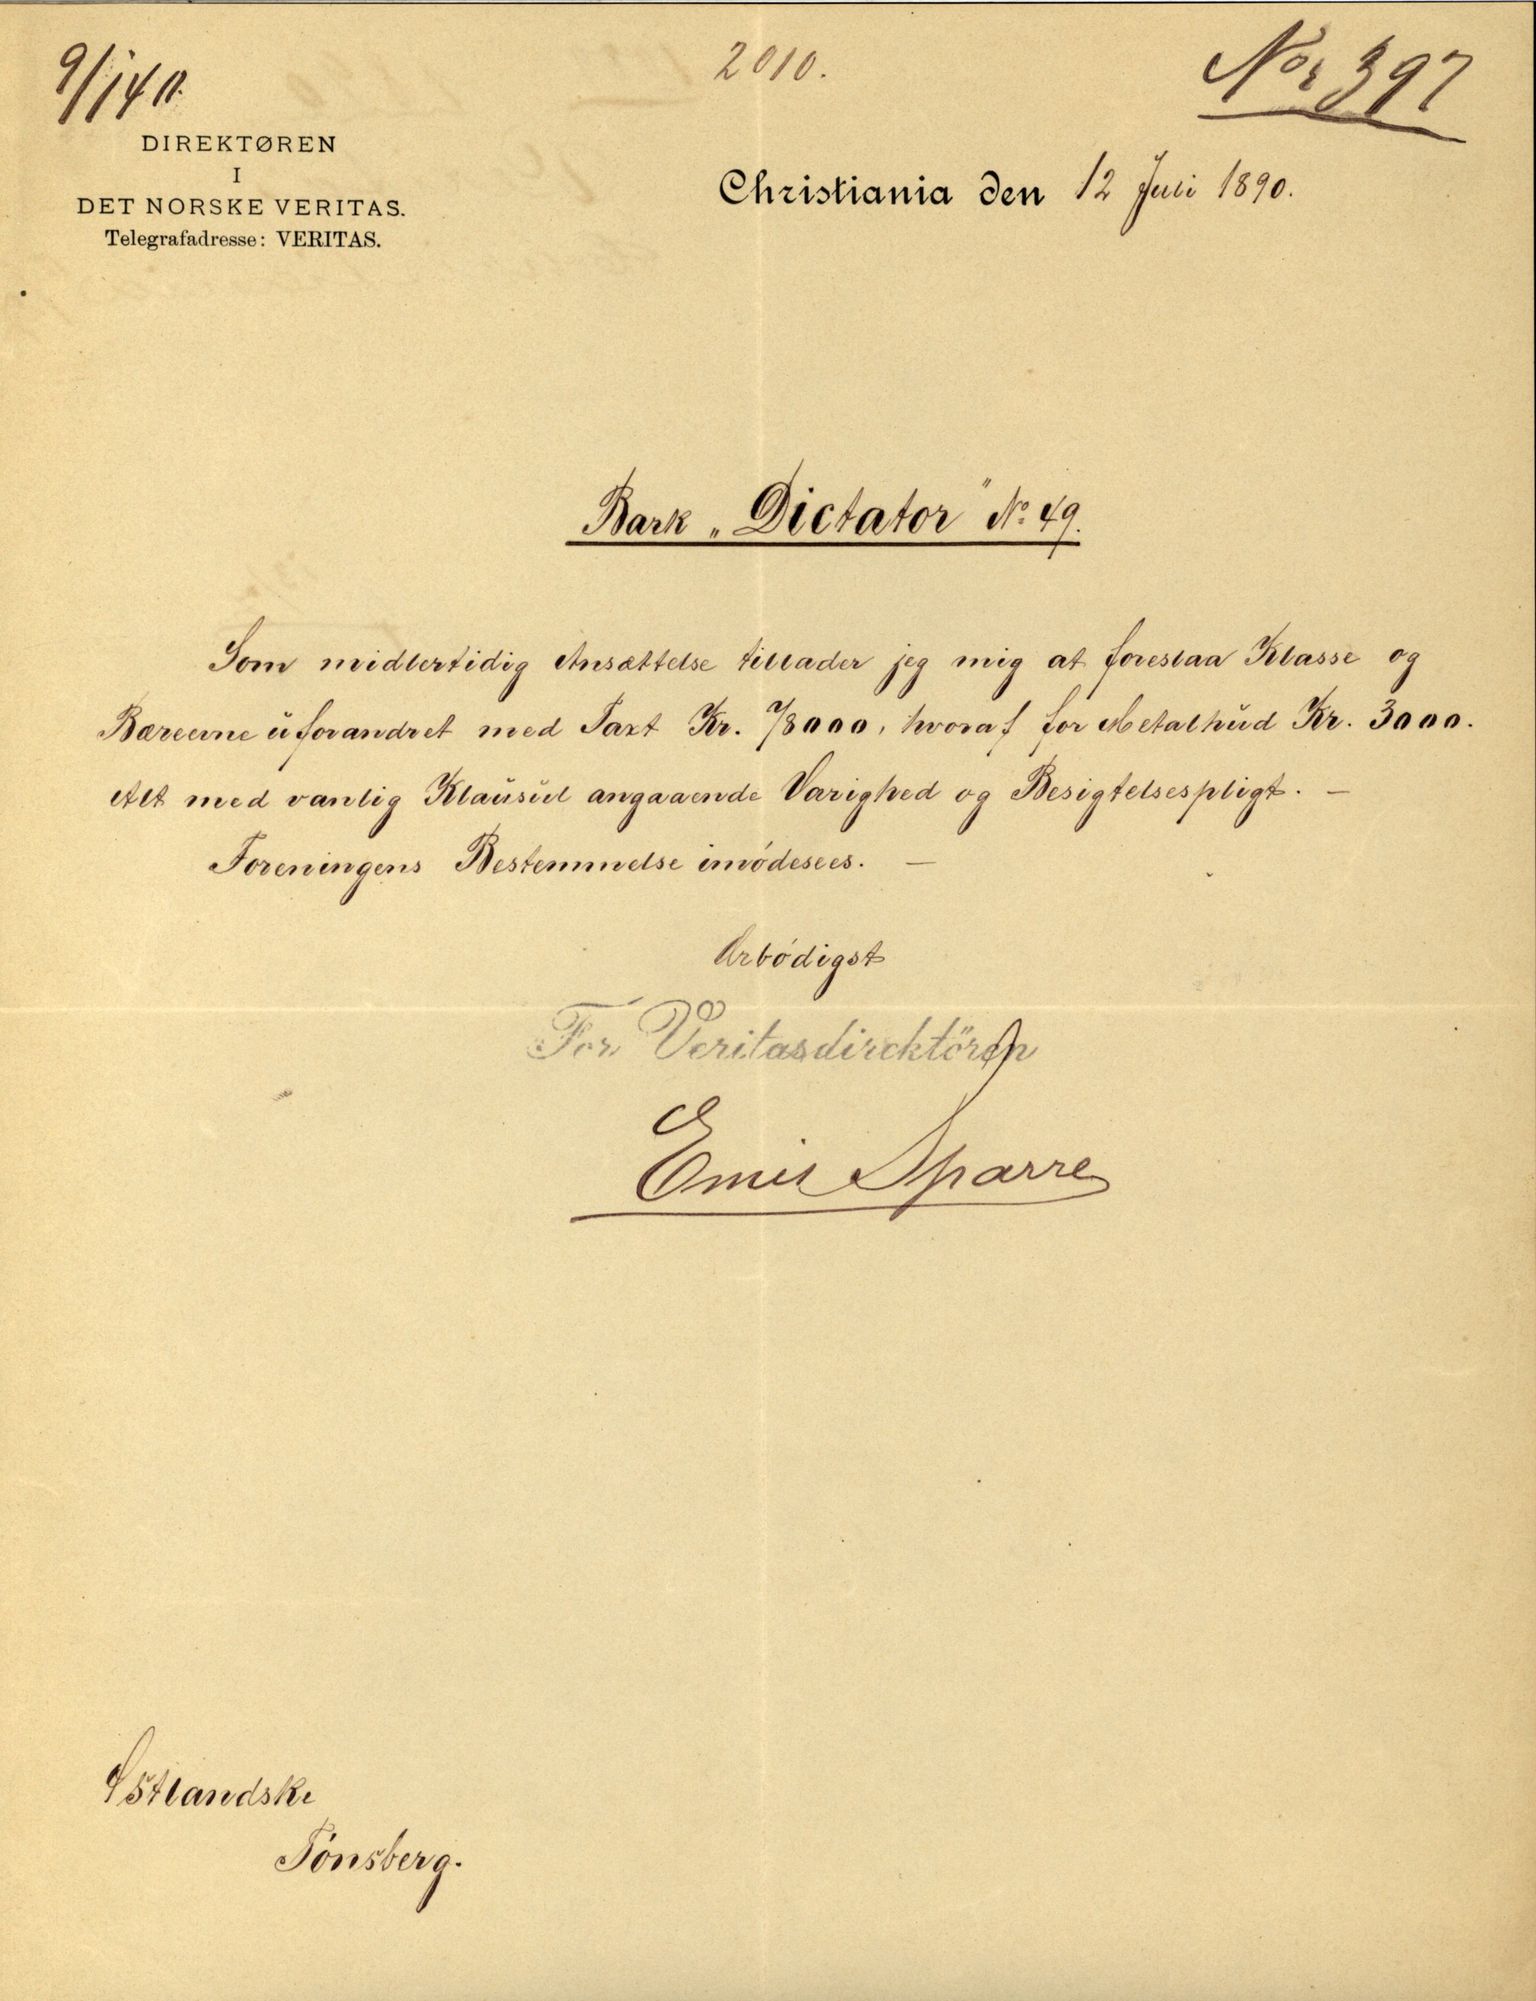 2010.
No 397
DIREKTØREN
I
DET NORSKE VERITAS.
Telegrafadresse: VERITAS.
Christiania den 12 Juli 1890.
Bark „Dictator" No. 49.
Som midlertidig Ansættelse tillader jeg mig at foreslaa Klasse og
Bæreevne uforandret med Taxt Kr. 78000, hvoraf for Metalhud Kr. 3000.
Alt med vanlig Klausul angaaende Varighed og Besigtelsespligt. —
Foreningens Bestemmelse imødesees. —
Ærbødigst
For Veritasdirektören
Emil Sparre
Østlandske
Tönsberg.